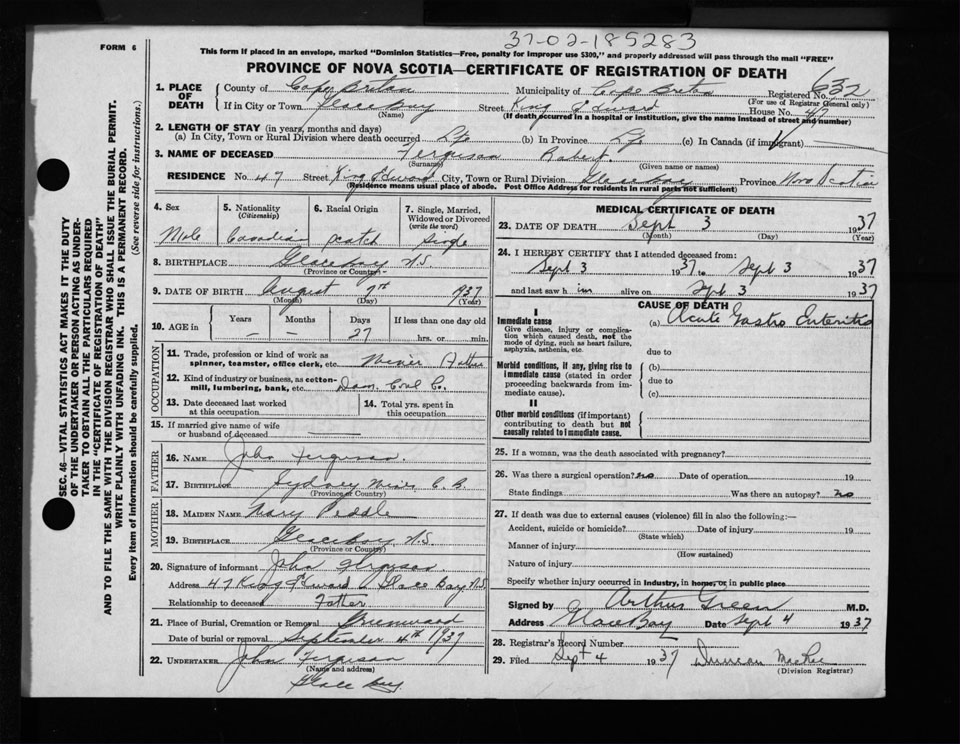 37-02-185283
FORM 6
This form if placed in an envelope, marked "Dominion Statistics—Free, penalty for improper use $300," and properly addressed will pass through the mail "FREE"
PROVINCE OF NOVA SCOTIA—CERTIFICATE OF REGISTRATION OF DEATH
SEC. 46—VITAL STATISTICS ACT MAKES IT THE DUTY
OF THE UNDERTAKER OR PERSON ACTING AS UNDER-
TAKER TO OBTAIN ALL THE PARTICULARS REQUIRED
IN THE "CERTIFICATE OF REGISTRATION OF DEATH"
AND TO FILE THE SAME WITH THE DIVISION REGISTRAR WHO SHALL ISSUE THE BURIAL PERMIT.
WRITE PLAINLY WITH UNFADING INK. THIS IS A PERMANENT RECORD.
Every item of information should be carefully supplied. (See reverse side for instructions.)
1. PLACE OF DEATH
County of Cape Breton Municipality of Cape Breton Registered No. 632
(For use of Registrar General only)
If in City or Town Glace Bay Street King Edward House No. 47
(Name) (If death occurred in a hospital or institution, give the name instead of street and number)
2. LENGTH OF STAY (in years, months and days)
(a) In City, Town or Rural Division where death occurred Life (b) in Province Life (c) In Canada (if immigrant)
3. NAME OF DECEASED Ferguson Robert
(Surname) (Given name or names)
RESIDENCE No. 47 Street King Edward City, Town or Rural Division Glace Bay Province Nova Scotia
(Residence means usual place of abode. Post Office Address for residents in rural parts not sufficient)
4. Sex
Male
5. Nationality
(Citizenship)
Canadian
6. Racial Origin
Scotch
7. Single, Married,
Widowed or Divorced
(write the word)
Single
8. BIRTHPLACE Glace Bay N.S.
(Province or Country)
9. DATE OF BIRTH August 7th 1937
(Month) (Day) (Year)
10. AGE in
Years Months Days If less than one day old
— — 27 hrs. or min.
OCCUPATION
11. Trade, profession or kind of work as
spinner, teamster, office clerk, etc. Miner Father
12. Kind of industry or business, as cotton-
mill, lumbering, bank, etc. Dom. Coal Co.
13. Date deceased last worked
at this occupation
14. Total yrs. spent in
this occupation
15. If married give name of wife
or husband of deceased
FATHER
16. NAME John Ferguson.
17. BIRTHPLACE Sydney Mines C.B.
(Province or Country)
MOTHER
18. MAIDEN NAME Mary Peddle
19. BIRTHPLACE Glace Bay N.S.
(Province or Country)
20. Signature of informant John Ferguson
Address 47 King Edward Glace Bay N.S.
Relationship to deceased Father
21. Place of Burial, Cremation or Removal Greenwood
Date of burial or removal September 4th 1937
22. UNDERTAKER John Ferguson
(Name and address)
Glace Bay.
MEDICAL CERTIFICATE OF DEATH
23. DATE OF DEATH Sept 3 1937
(Month) (Day) (Year)
24. I HEREBY CERTIFY that I attended deceased from:
Sept 3 1937 to Sept 3 1937
and last saw h im alive on Sept 3 1937
CAUSE OF DEATH
I
Immediate cause
Give disease, injury or complica-
tion which caused death, not the
mode of dying, such as heart failure,
asphyxia, asthenia, etc.
(a) Acute Gastro Enteritis
due to
Morbid conditions, if any, giving rise to
immediate cause (stated in order
proceeding backwards from im-
mediate cause).
(b)
due to
(c)
II
Other morbid conditions (if important)
contributing to death but not
causally related to immediate cause.
25. If a woman, was the death associated with pregnancy?
26. Was there a surgical operation? no Date of operation 19
State findings Was there an autopsy? no
27. If death was due to external causes (violence) fill in also the following:—
Accident, suicide or homicide? Date of injury 19
(State which)
Manner of injury
(How sustained)
Nature of injury
Specify whether injury occurred in industry, in home, or in public place
Signed by Arthur Green M.D.
Address Glace Bay Date Sept 4 1937
28. Registrar's Record Number
29. Filed Sept 4 1937 Duncan MacRae
(Division Registrar)